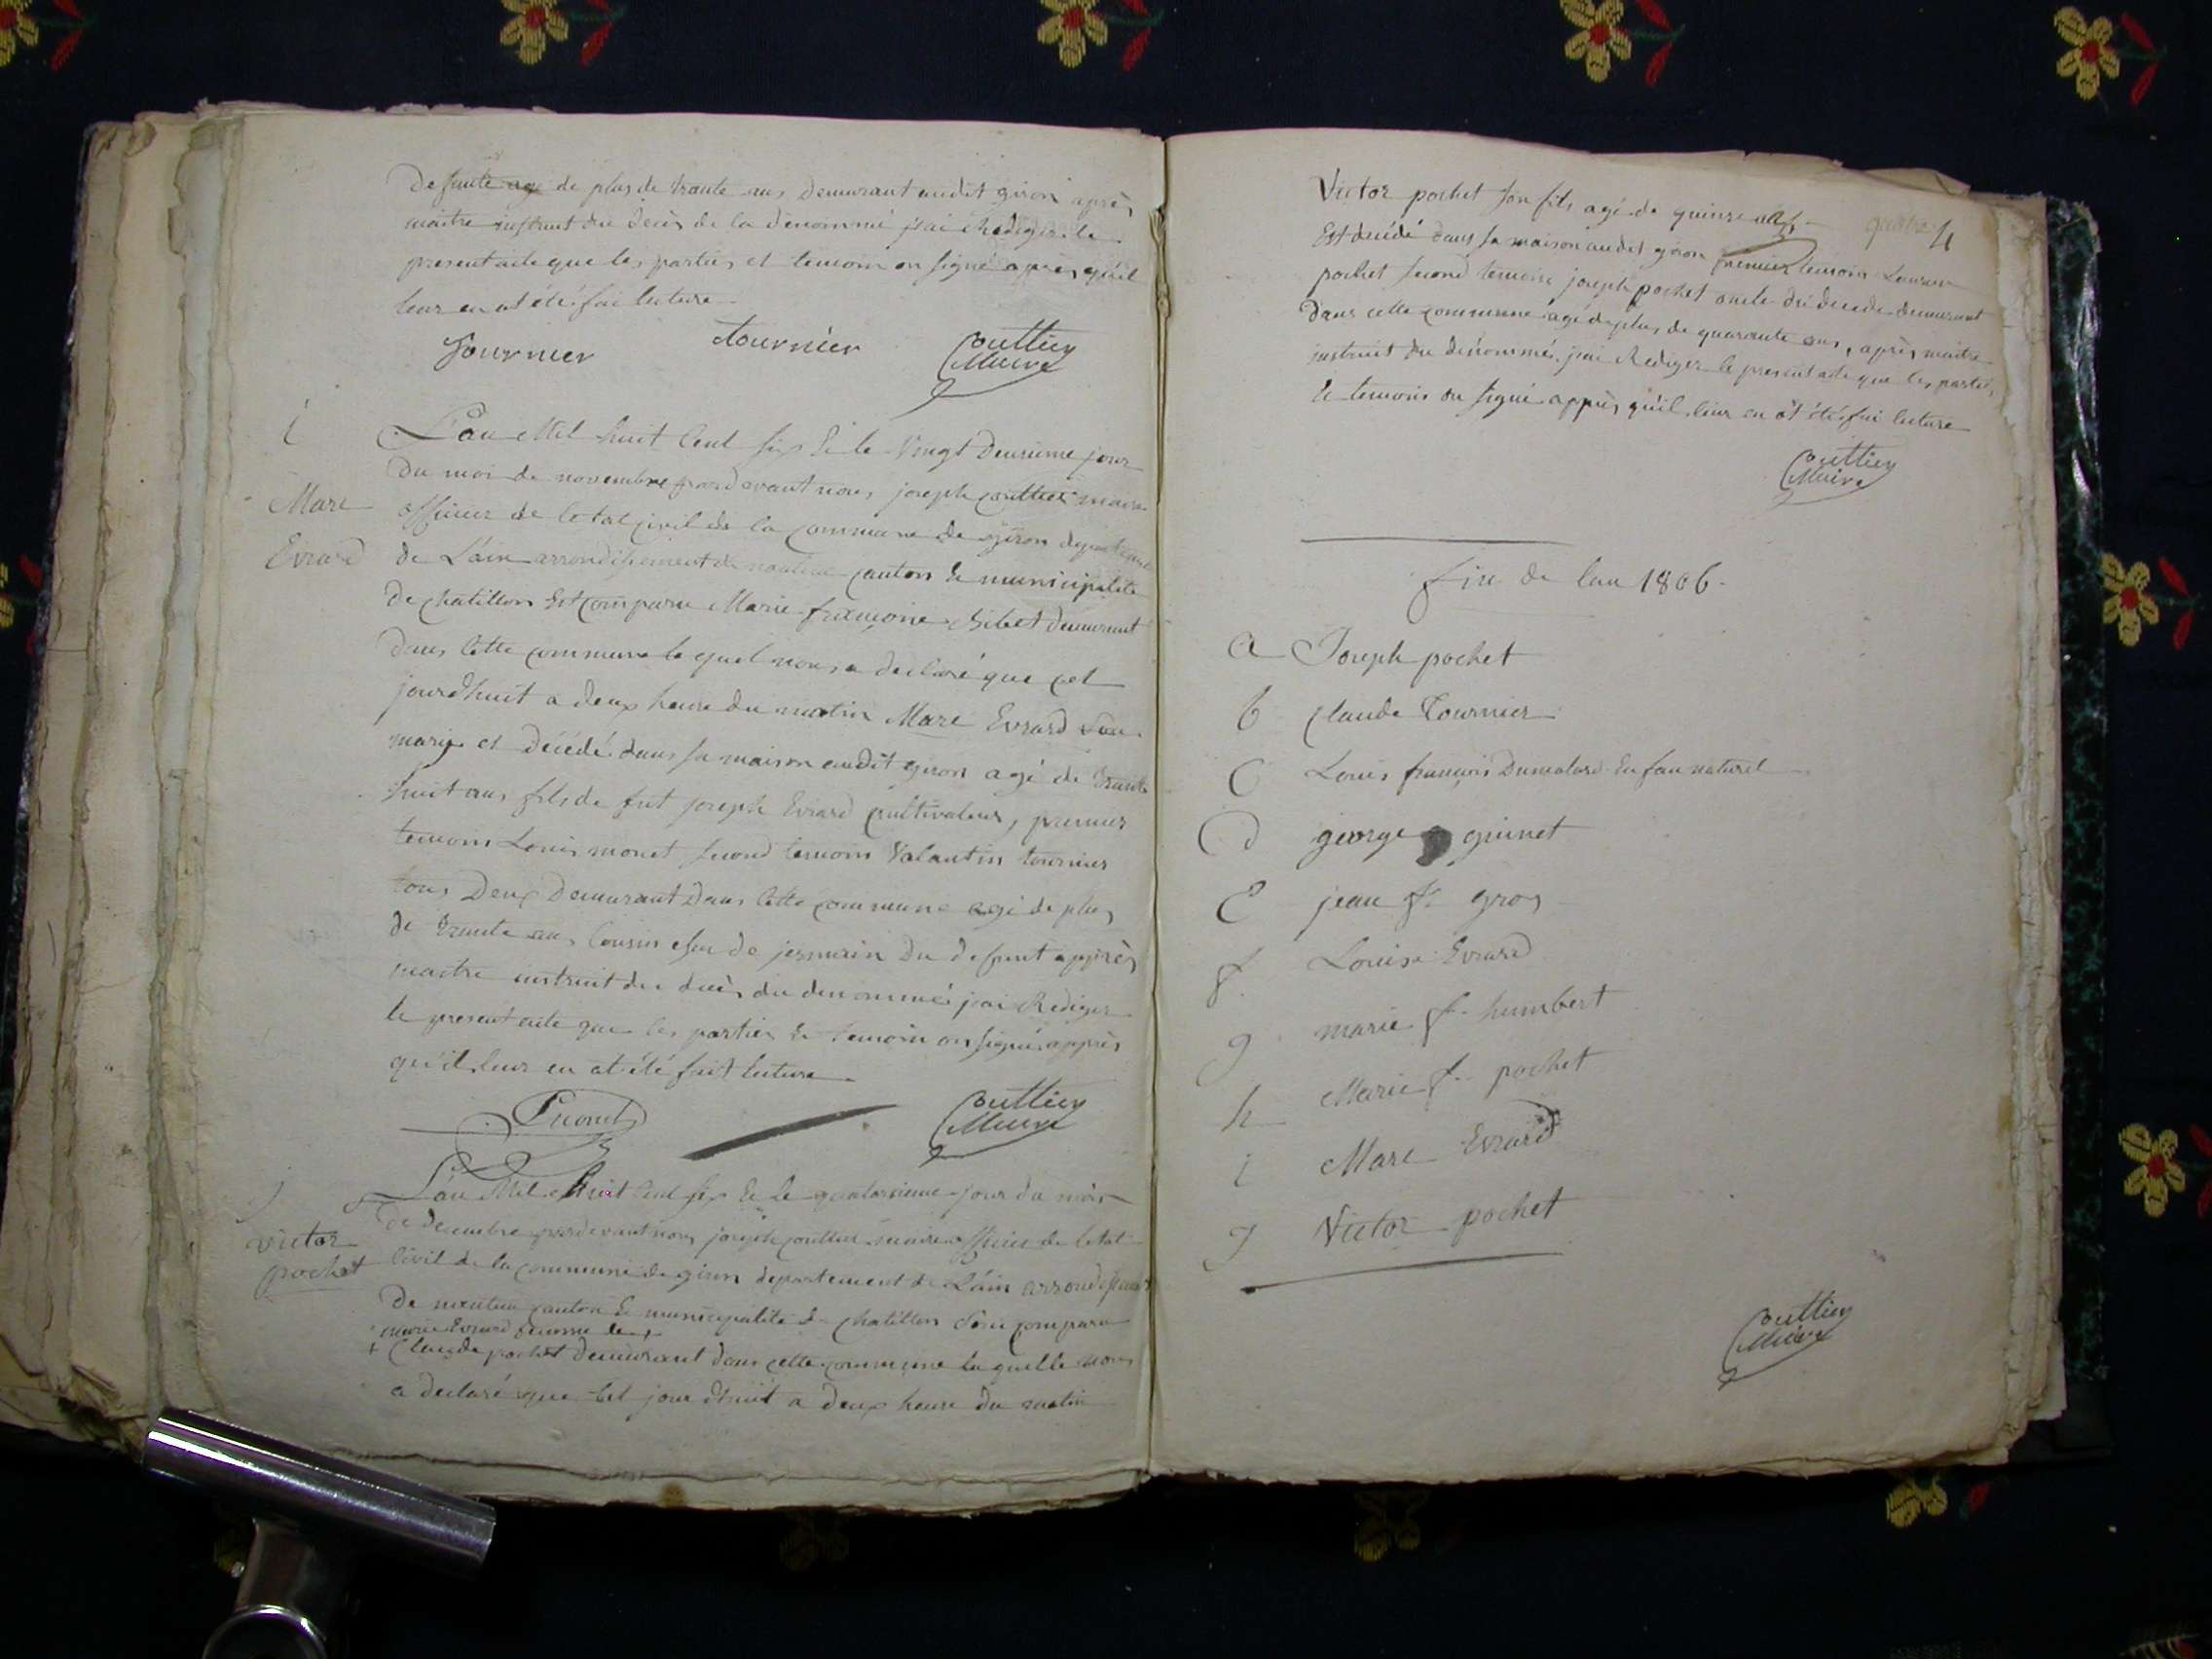 Defunte agé de plus de trante ans demurant audit giron après
maitre instruit du decès de la denommé j'ai Rediger le
present acte que les parties et temoin on signé après qu'il
leur en at été fai lecture
Tournier Tournier Couttier
Maire
i
Marc
Evrard
L'an Mil huit Cent six & le Vingt deuxieme jour
du moi de novembre pardevant nous joseph Couttier maire
officier de l'etat civil de la commune de giron departement
de L'ain arrondissement de nantua canton & municipalité
de chatillon Est comparu Marie françoise demurant
dans cette commune lequel nous a declaré que cet
jourdhuit a deux heure du matin Marc Evrard son
marie et décédé dans sa maison audit giron agé de trante
huit ans fils de fut joseph Evrard cultivateur, premier
temoins Louis monet second temoin Valantin tournier
tous Deux Demurant Dans Cette commune agé de plus
de trante ans Cousin jermain Du defunt appiès
maitre instruit du decès du denommé j'ai Rediger
le present acte que les parties & temoin on signé appiès
qu'il leur en at été fait lecture
Couttier
Maire
j
Victor
pochet
L'an Mil Huit Cent six & le quatorzieme jour du mois
de decembre pardevant nous joseph Couttier maire officier de l'etat
Civil de la commune de giron departement de L'ain arrondissement
De nantua canton & municipalité de chatillon comparu
marie Evrard femme de
+ Claude pochet demurant dans cette commune laquelle nous
a declaré que cet jour dhuit a deux heure du matin
quatre 4
Victor pochet son fils agé de quinze ans
Est decédé dans sa maison audit giron premier temoin
pochet second temoin joseph pochet oncle du decede demurant
Dans cette commune agé de plus de quarante ans, après maitre
instruit du denommé j'ai Rediger le present acte que les parties
& temoins on signé appiès qu'il leur en at été fai lecture
Couttier
Maire
fin de l'an 1806.
a Joseph pochet
b Claude Tournier
C Louis françois Dumolard Enfan naturel
D george guinet
E jean fs gros
f Louise Evrard
g marie f humbert
h Marie f pochet
i Marc Evrard
J Victor pochet
Couttier
Maire